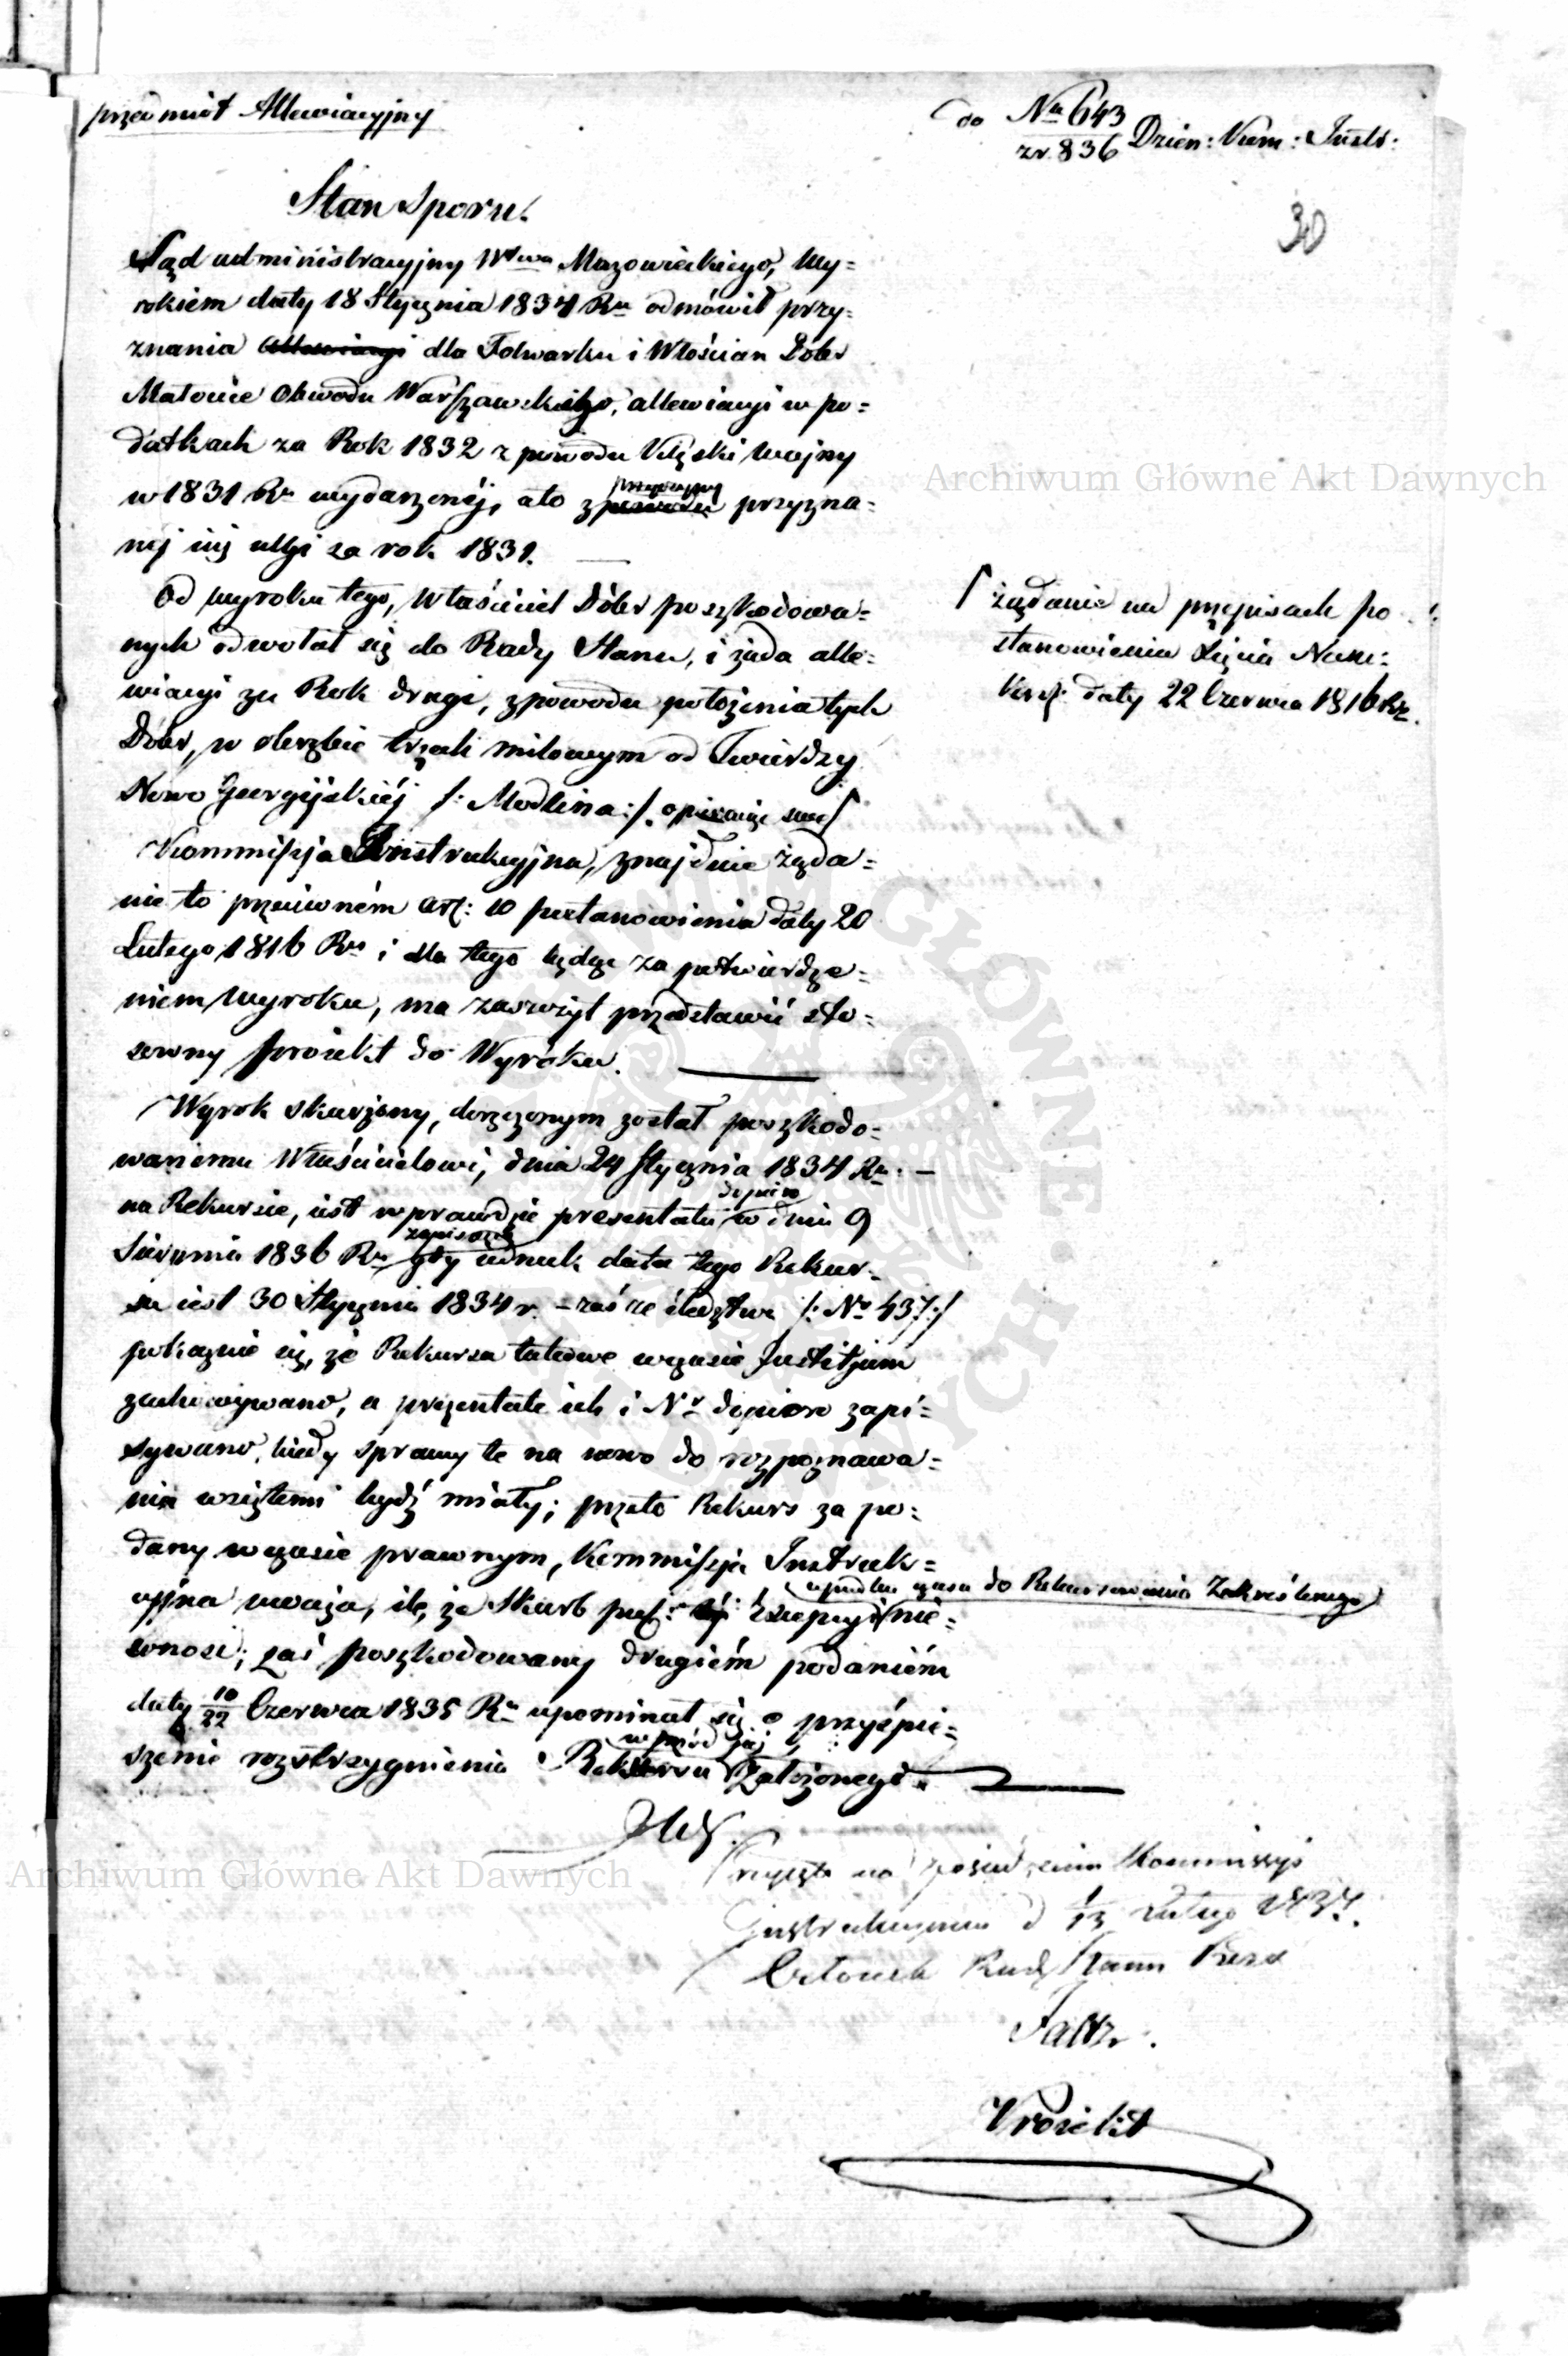 przedmiot Allewiacyjny
do Nu 643 Dzien: Kom: Instr:
zr. 836
30
Stan Sporu.
Sąd administracyjny Wwa Mazowieckiego, Wy=
rokiem daty 18 Stycznia 1834 Ru odmówił przy=
znania allewiacyi dla Folwarku i Włościan Dóbr
Małocie Obwodu Warszawskiego, allewiacyi w po=
datkach za Rok 1832 z powodu klęski Wojny
w 1831 Ru wydarzonéj, a to z powodu przyczyny przyzna=
néj iuż ulgi za rok 1831.
Od wyroku tego, Właściciel Dóbr poszkodowa=
nych odwołał się do Rady Stanu, i żąda alle=
wiacyi za Rok drugi, z powodu położenia tych
Dóbr, w obrębie trzech milowym od Twierdzy
Nowo Georgijskiéj /: Modlina :/. opieraiąc swe
żądanie na przepisach po=
stanowienia Xięcia Names:
Król: daty 22 Czerwca 1816 Ru.
Kommissja Instrukcyjna, znajduie żąda=
nie to przeciwném art: 10 postanowienia daty 20
Lutego 1816 Ru i dla tego będąc za potwierdze=
niem Wyroku, ma zaszczyt przedstawić sto=
sowny proiekt do Wyroku.
Wyrok skarżony, doręczonym został poszkodo=
wanemu Właścicielowi, dnia 24 Stycznia 1834 Ru: —
na Rekursie, iest wprawdzie presentata dopiero w dniu 9
Sierpnia 1836 Ru zapisana gdy iednak data tego Rekur=
su iest 30 Stycznia 1834 r. – zaś ze śledztwa /: No 437 :/
pokazuie się, że Rekursa takowe w czasie Justitjum
zachowywano, a prezentate ich i Nr dopiero zapi=
sywano, kiedy sprawy te na nowo do rozpoznawa=
nia wziętemi bydź miały; przeto Rekurs za po=
dany w czasie prawnym, Kommissja Instruk=
cyjna uważa, ile, że Skarb publ: excepcyi upadku czasu do Rekursowania Zakreślonego nie=
wnosi; zaś poszkodowany drugiém podaniém
daty 10/22 Czerwca 1835 Ru upominał się o przyśpie=
szenie rozstrzygnienia Rekursu wprzód już Założonego.
Przyjęto na posiedzeniu Kommissyi
Instrukcyjnej d 1/13 Lutego 1837.
Członek Rady Stanu Prezes
Proiekt